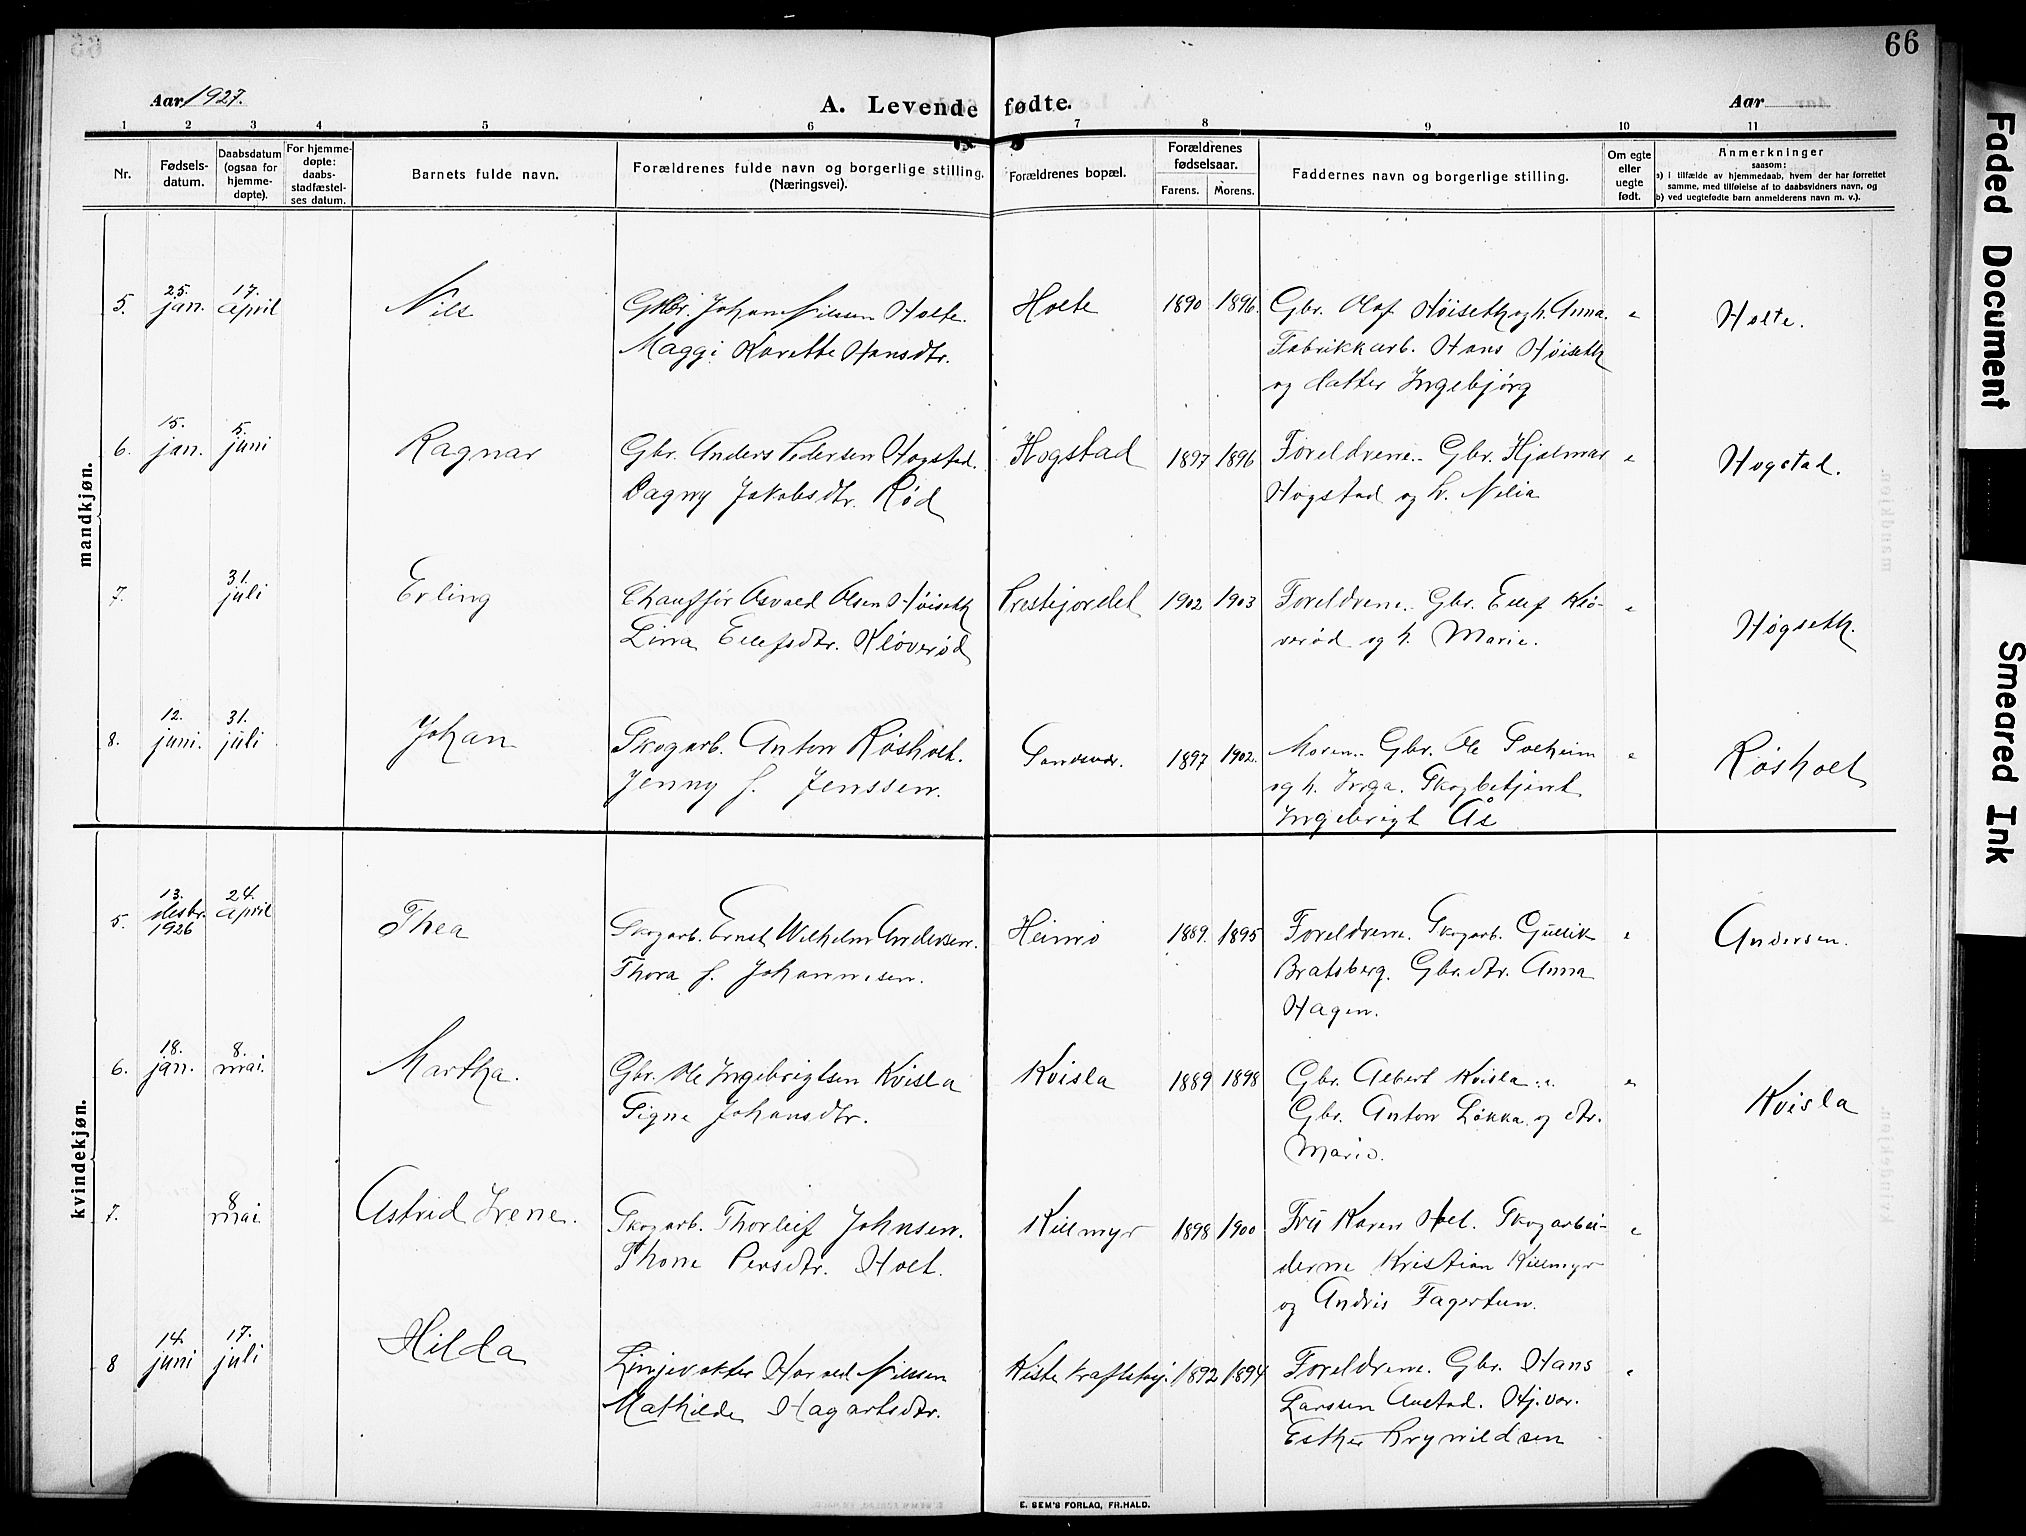 66
Aar 1927.
A. Levende fødte.
Aar
1 2 3 4 5 6 7 8 9 10 11
Nr.
Fødsels-
datum.
Daabsdatum
(ogsaa for
hjemme-
døpte).
For hjemme-
døpte:
daabs-
stadfæstel-
ses datum.
Barnets fulde navn.
Forældrenes fulde navn og borgerlige stilling.
(Næringsvei).
Forældrenes bopæl.
Forældrenes
fødselsaar.
Farens. Morens.
Faddernes navn og borgerlige stilling.
Om egte
eller
uegte
født.
Anmerkninger
saasom:
a) i tilfælde av hjemmedaab, hvem der har forrettet
samme, med tilføielse af to daabsvidners navn, og
b) ved uegtefødte barn anmelderens navn m. v.).
mandkjøn.
5. 25. jan. 17. april Nils
Gbr. Johan Nilssen Holte.
Maggi Karette Hansdtr.
Holte 1890 1896.
Gbr. Olaf Høiseth og h. Anna.
Fabrikkarb. Hans Høiseth
og datter Ingebjørg
" Holte.
6. 15. jan. 5. juni Ragnar
Gbr. Anders Pedersen Hogstad.
Dagny Jakobsdtr. Rød
Hogstad 1897 1896
Foreldrene. Gbr. Hjalmar
Hogstad og h. Nilia
" Hogstad.
7. 31. juli Erling
Chauffør Asvald Olsen Høiseth
Lina Eilefsdtr. Kløverød
Prestejordet 1902 1903
Foreldrene. Gbr. Eilef Klø-
verød og h. Marie.
" Høgseth.
8. 12. juni. 31. juli Johan
Skogarb. Anton Røsholt.
Jenny f. Jenssen.
Sandsvær. 1897 1902.
Moren. Gbr. Ole Solheim
og h. Inga. Skogbetjent
Ingebrigt Ås
" Røsholt
kvindekjøn.
5. 13. desbr. 1926 24. april Thea
Skogarb. Ernst Wilhelm Andersen.
Thora f. Johannesen.
Heimrø 1889. 1895
Foreldrene. Skogarb. Gullik
Bratsberg. Gbr.dtr. Anna
Hagen.
" Andersen.
6. 18. jan. 8. mai. Martha.
Gbr. Ole Ingebrigtsen Kvisla
Signe Johansdtr.
Kvisla 1889 1898
Gbr. Albert Kvisla.
Gbr. Anton Løkka og dtr.
Marie.
" Kvisla
7. 8. mai. Astrid Irene.
Skogarb. Thorleif Johnsen.
Thone Persdtr. Holt.
Killmyr 1898 1900
Fru Karen Holt. Skogarbei-
derne Kristian Killmyr
og Andris Fagertun.
"
8 14. juni 17. juli Hilda
Linjevokter Harald Nilssen
Mathilde Hagartsdtr.
Kiste kraftstasj. 1892 1894
Foreldrene. Gbr. Hans
Larssen Austad. Hj.var.
Esther Brynildsen
"
E. SEM'S FORLAG, FR.HALD.
Faded Document
Smeared Ink